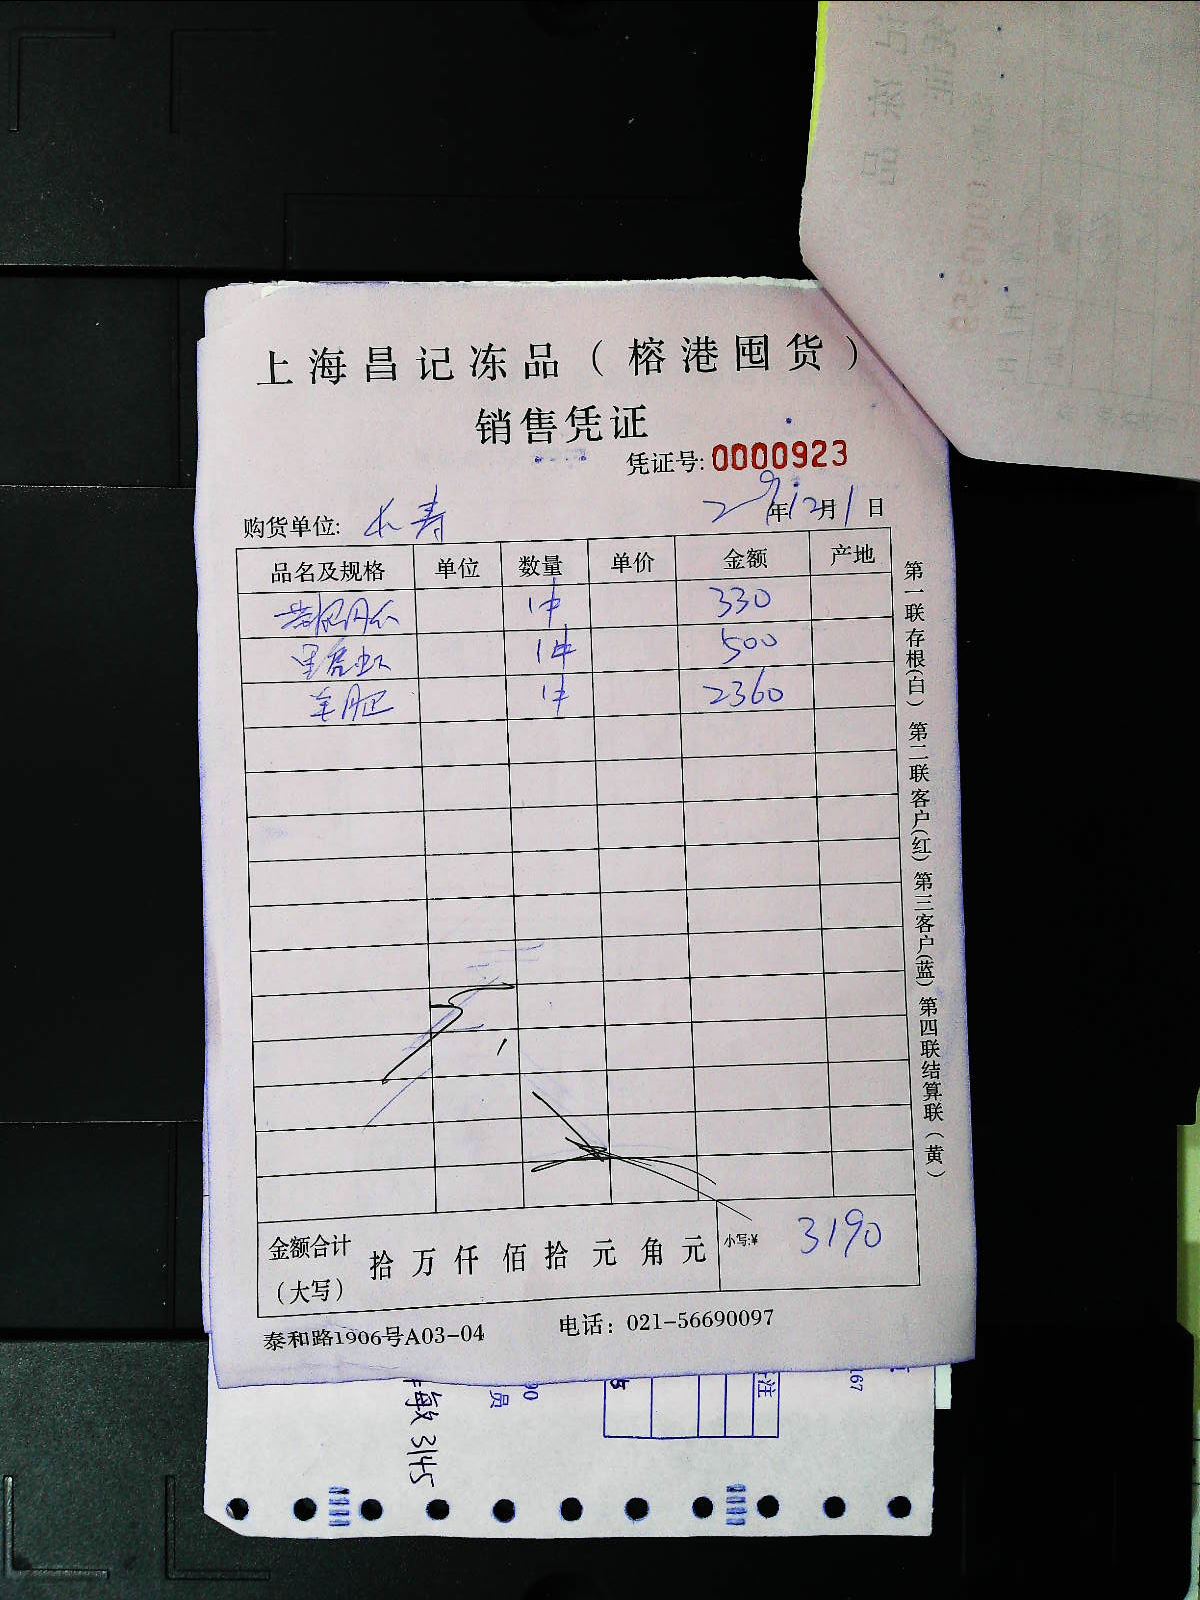 上海昌记冻品（榕港囤货）
销售凭证
凭证号: 0000923
购货单位: 长寿 年12月1日
品名及规格 单位 数量 单价 金额 产地
1件 330
黑虎虾 1件 500
羊肥 1件 2360
金额合计（大写） 拾 万 仟 佰 拾 元 角 元 小写:¥ 3190
泰和路1906号A03-04 电话: 021-56690097
第一联存根(白) 第二联客户(红) 第三客户(蓝) 第四联结算联(黄)
敏 3145
员
90
注
167